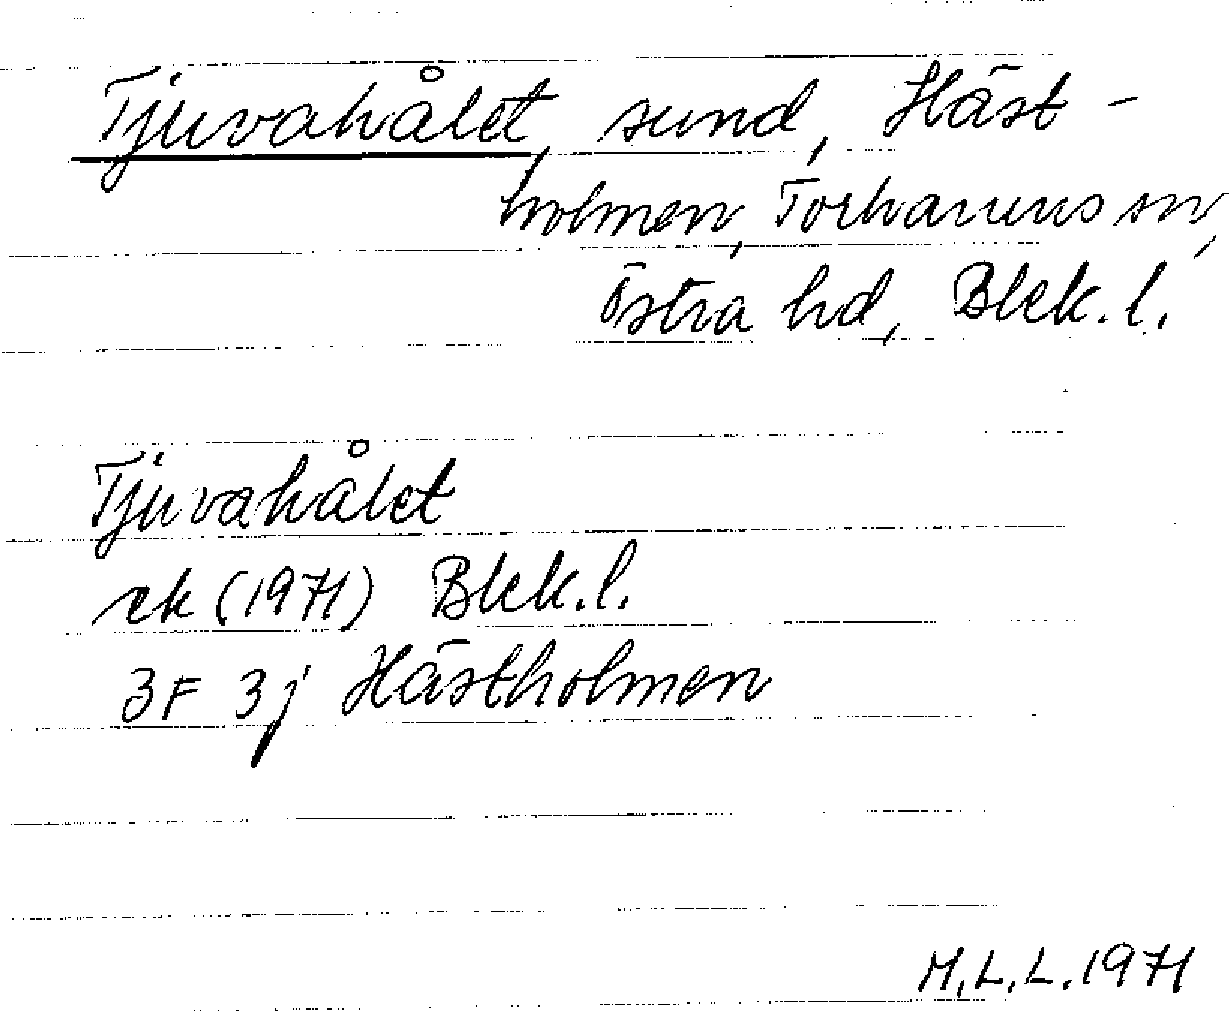 Tjuvahålet, sund, Häst-
holmen, Torhamns sn,
Östra hd, Blek. l.
Tjuvahålet
ek (1971) Blek. l.
3F 3j Hästholmen
M.L.L. 1971